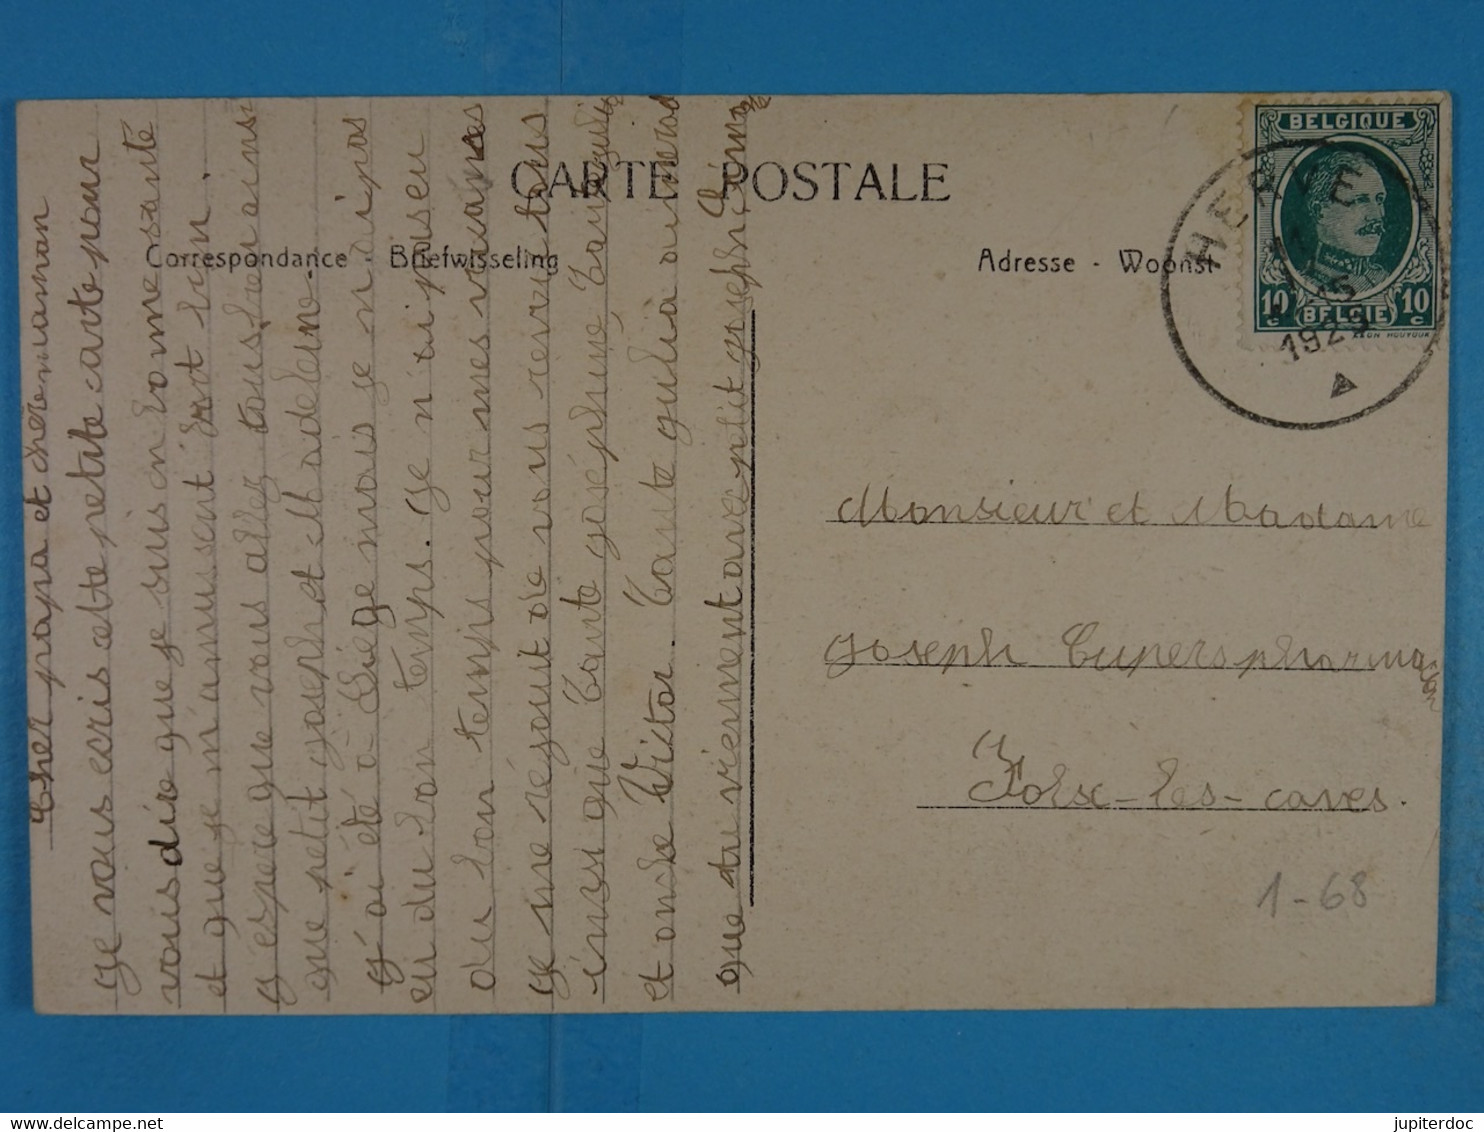 CARTE POSTALE
Correspondance - Briefwisseling
Adresse - Woonst
BELGIQUE
10 c BELGIE 10 c
HERVE
15
1929
Cher papa et chère maman
Je vous ecris cette petite carte pour
vous dire que je suis en bonne santé
et que je m'amusent bien.
J'espère que vous allez tous bien ainsi
que petit joseph et Madeleine.
J'ai été à Liège mais je n'ai pas
eu du bon temps. Je n'ai pas eu
du bon temps pour mes vacances
Je me réjouit de vous revoir tous
insi que Tante joséphine,
et oncle Victor. Tante julia
que tu viennent avec petit joseph.
Monsieur et Madame
joseph Cupers pharmacien
Folx-les-caves.
1-68
jupiterdoc